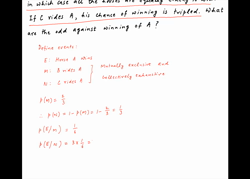 in which case all the horses are equally likely to win.
If C rides A, his chance of winning is tripled. What
are the odd against winning of A ?
Define events:
E: Horse A wins
M: B rides A } Mutually exclusive and
N: C rides A } collectively exhaustive
P(M) = 2/3
∴ P(N) = 1 - P(M) = 1 - 2/3 = 1/3
P(E/M) = 1/6
P(E/N) = 3 × 1/6 =